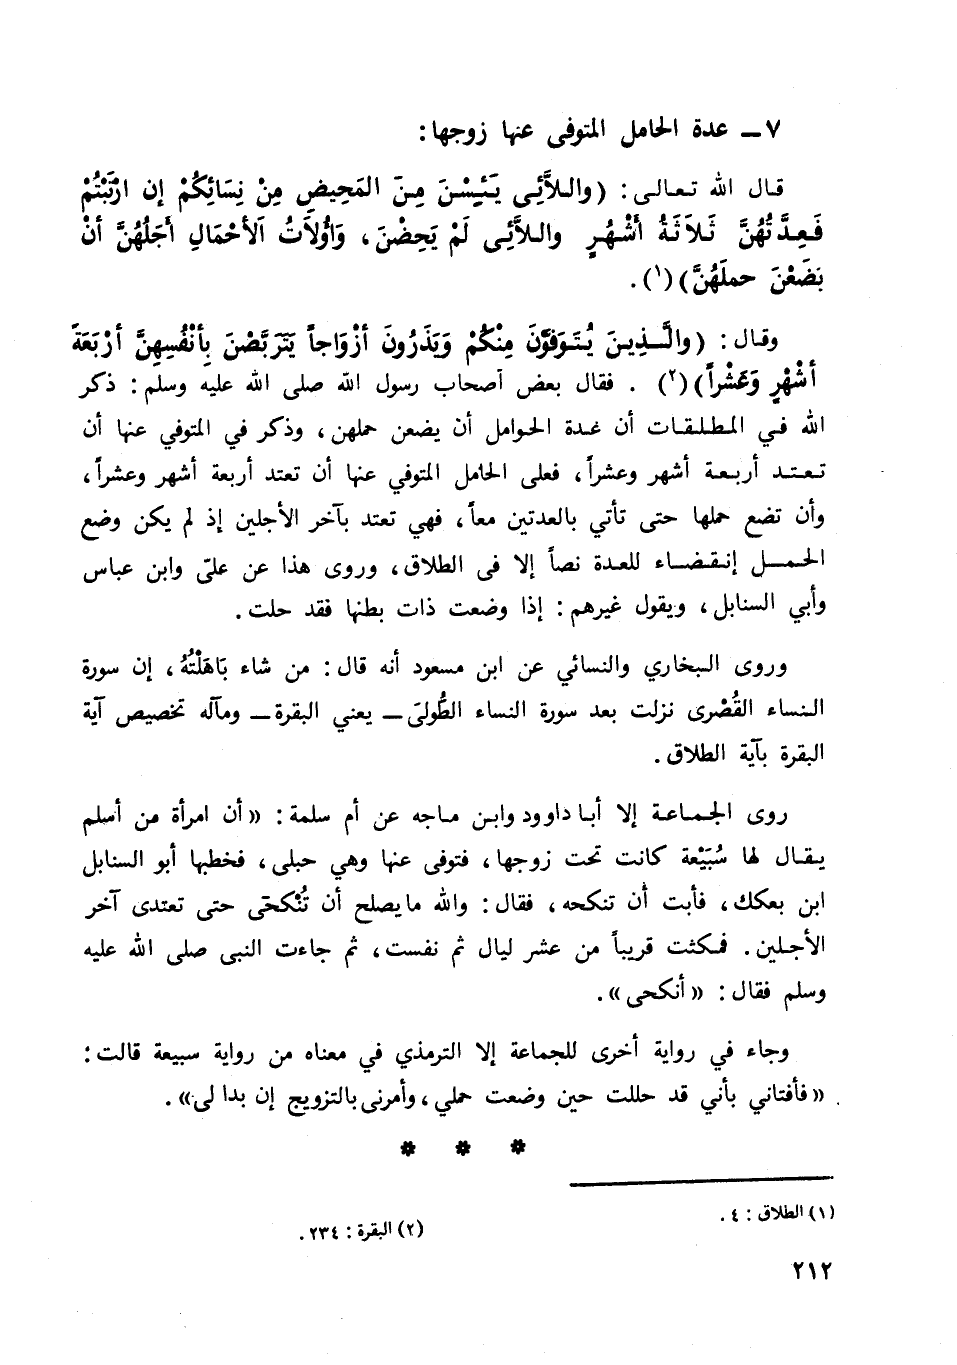 ٧ ــ عدة الحامل المتوفى عنها زوجها:
قال الله تعالى: (واللاَّئِى يَئِسْنَ مِنَ المَحِيضِ مِنْ نِسَائِكُمْ إن ارْتَبْتُمْ
فَعِدَّتُهُنَّ ثَلاَثَةُ أَشْهُرٍ واللاَّئِى لَمْ يَحِضْنَ، وَأُوْلاَتُ اَلأَحْمَالِ أَجَلُهُنَّ أنْ
يَضَعْنَ حملَهُنَّ)(١).
وقال: (والَّذِينَ يُتَوَفَّوْنَ مِنْكُمْ وَيَذَرُونَ أزْوَاجاً يَتَرَبَّصْنَ بِأَنْفُسِهِنَّ أرْبَعَةَ
أشْهُرٍ وَعَشْراً)(٢) . فقال بعض أصحاب رسول الله صلى الله عليه وسلم: ذكر
الله في المطلقات أن عدة الحوامل أن يضعن حملهن، وذكر في المتوفي عنها أن
تعتد أربعة أشهر وعشراً، فعلى الحامل المتوفي عنها أن تعتد أربعة أشهر وعشراً،
وأن تضع حملها حتى تأتي بالعدتين معاً، فهي تعتد بآخر الأجلين إذ لم يكن وضع
الحمل إنقضاء للعدة نصاً إلا فى الطلاق، وروى هذا عن علىّ وابن عباس
وأبي السنابل، ويقول غيرهم: إذا وضعت ذات بطنها فقد حلت.
وروى البخاري والنسائي عن ابن مسعود أنه قال: من شاء بَاهَلْتُهُ، إن سورة
النساء القُصْرى نزلت بعد سورة النساء الطُّولىَ ــ يعني البقرة ــ ومآله تخصيص آية
البقرة بآية الطلاق.
روى الجماعة إلا أبا داوود وابن ماجه عن أم سلمة: «أن امرأة من أسلم
يقال لها سُبَيْعة كانت تحت زوجها، فتوفى عنها وهي حبلى، فخطبها أبو السنابل
ابن بعكك، فأبت أن تنكحه، فقال: والله ما يصلح أن تُنْكحَى حتى تعتدى آخر
الأجلين. فمكثت قريباً من عشر ليال ثم نفست، ثم جاءت النبى صلى الله عليه
وسلم فقال: «أنكحى».
وجاء في رواية أخرى للجماعة إلا الترمذي في معناه من رواية سبيعة قالت:
«فأفتاني بأني قد حللت حين وضعت حملي، وأمرنى بالتزويج إن بدا لى».
* * *
(١) الطلاق: ٤.
(٢) البقرة: ٢٣٤.
٢١٢